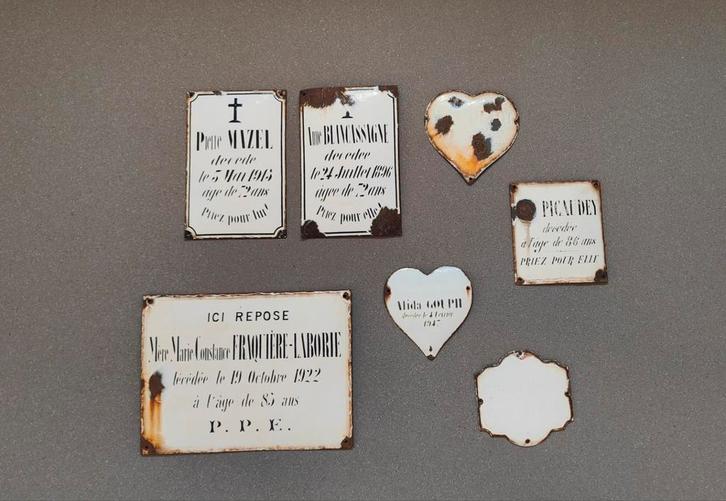 Pierre MAZEL
décédé
le 5 Mai 1915
âgé de 72 ans
Priez pour lui!
Anne BLANCASSAGNE
décédée
le 24 Juillet 1896
âgée de 72 ans
Priez pour elle!
PICAUDEY
décédée
à l'âge de 86 ans
PRIEZ POUR ELLE
Alida GOUPIL
décédée le
1947
ICI REPOSE
Mère Marie Constance FRAQUIÈRE-LABORIE
décédée le 19 Octobre 1922
à l'âge de 85 ans
P. P. E.